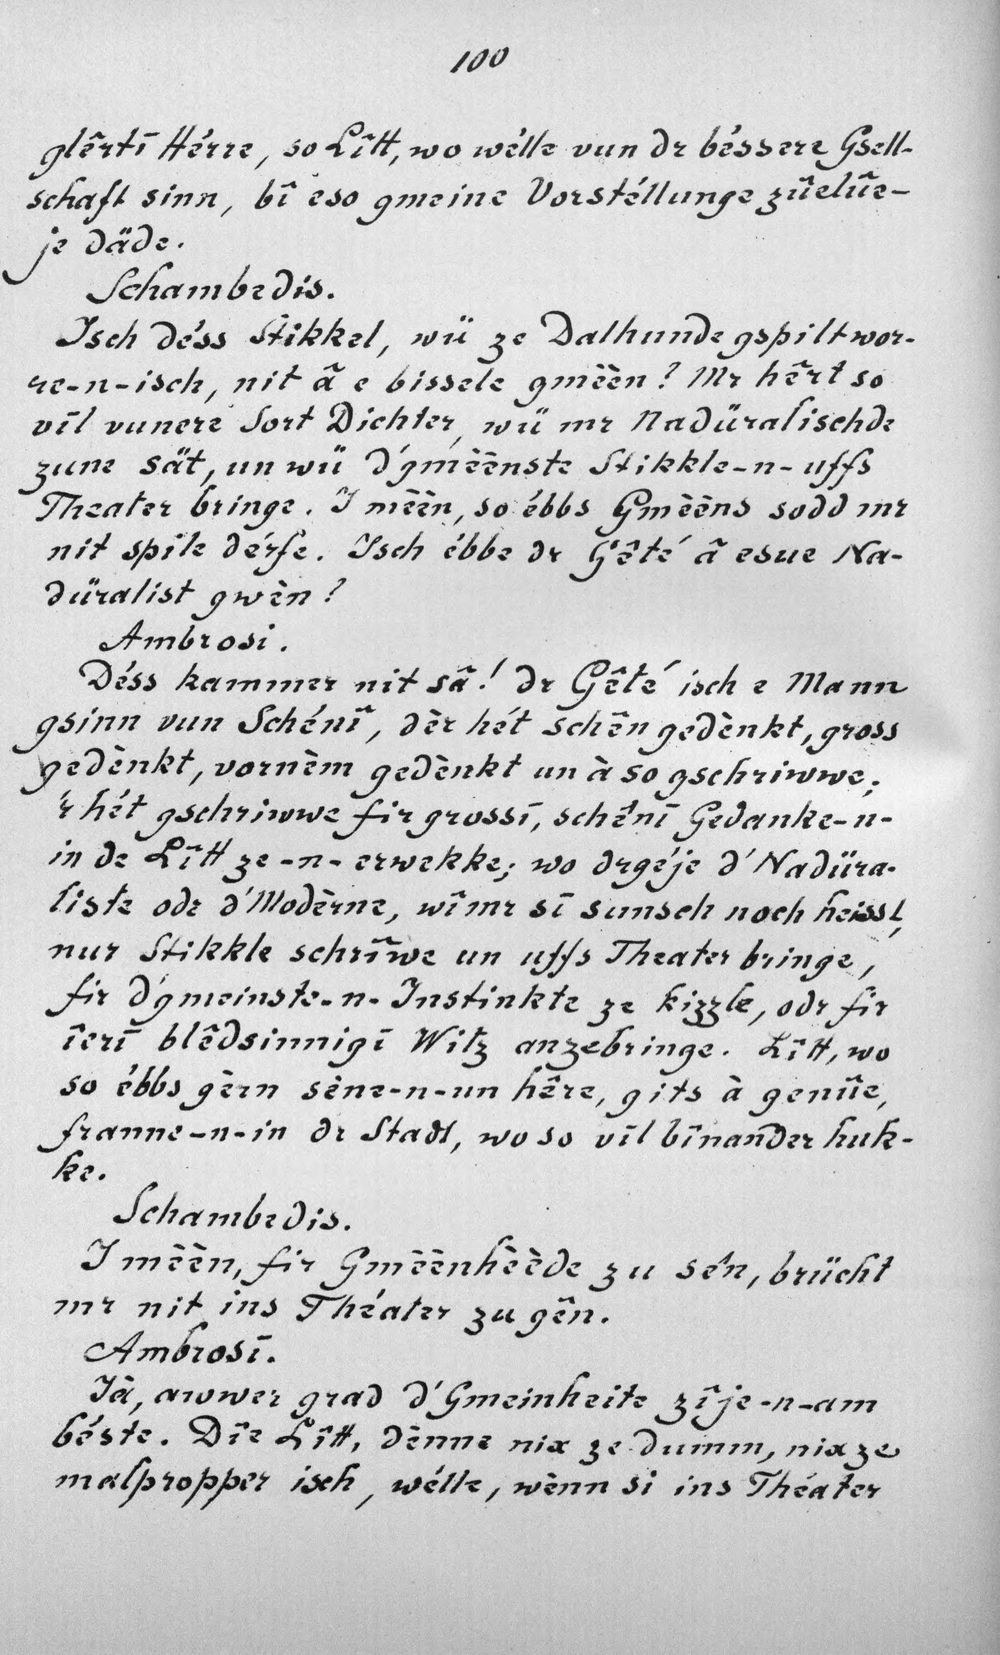 100
glêrtī Hérre, so Lîtt, wo wélle vun dr béssere Gsell-
schaft sinn, bî eso gmeine Vorstéllunge zûelûe-
je däde.
Schambedis.
Isch déss Stikkel, wü ze Dalhunde gspilt wor-
re-n-isch, nit â e bissele gmèèn? Mr hêrt so
vīl vunere Sort Dichter, wü mr Nadüralischde
zune sät, un wü d'gmèènste Stikkle-n-uffs
Theater bringe. I mèèn, so ébbs Gmèèns sodd mr
nit spile dérfe. Isch ébbe dr Gêté â esue Na-
düralist gwèn?
Ambrosi.
Déss kammer nit sâ! dr Gêté isch e Mann
gsinn vun Schénî, dèr hét schên gedènkt, gross
gedènkt, vornèm gedènkt un à so gschriwwe;
'r hét gschriwwe fir grossī, schênī Gedanke-n-
in de Lîtt ze-n-erwekke; wo drgéje d'Nadüra-
liste odr d'Modèrne, wî mr sī sunsch noch heisst,
nur Stikkle schrîwe un uffs Theater bringe,
fir d'gmeinste-n-Instinkte ze kizzle, odr fir
îerī blêdsinnigī Witz anzebringe. Lîtt, wo
so ébbs gèrn sène-n-un hêre, gits à genûe,
franne-n-in dr Stadt, wo so vīl bînander huk-
ke.
Schambedis.
I mèèn, fir Gmèènhèède zu sén, brücht
mr nit ins Théater zu gên.
Ambrosī.
Jà, awwer grad d'Gmeinheite zîje-n-am
béste. Dîe Lîtt, dènne nix ze dumm, nix ze
malpropper isch, wélle, wènn si ins Théater